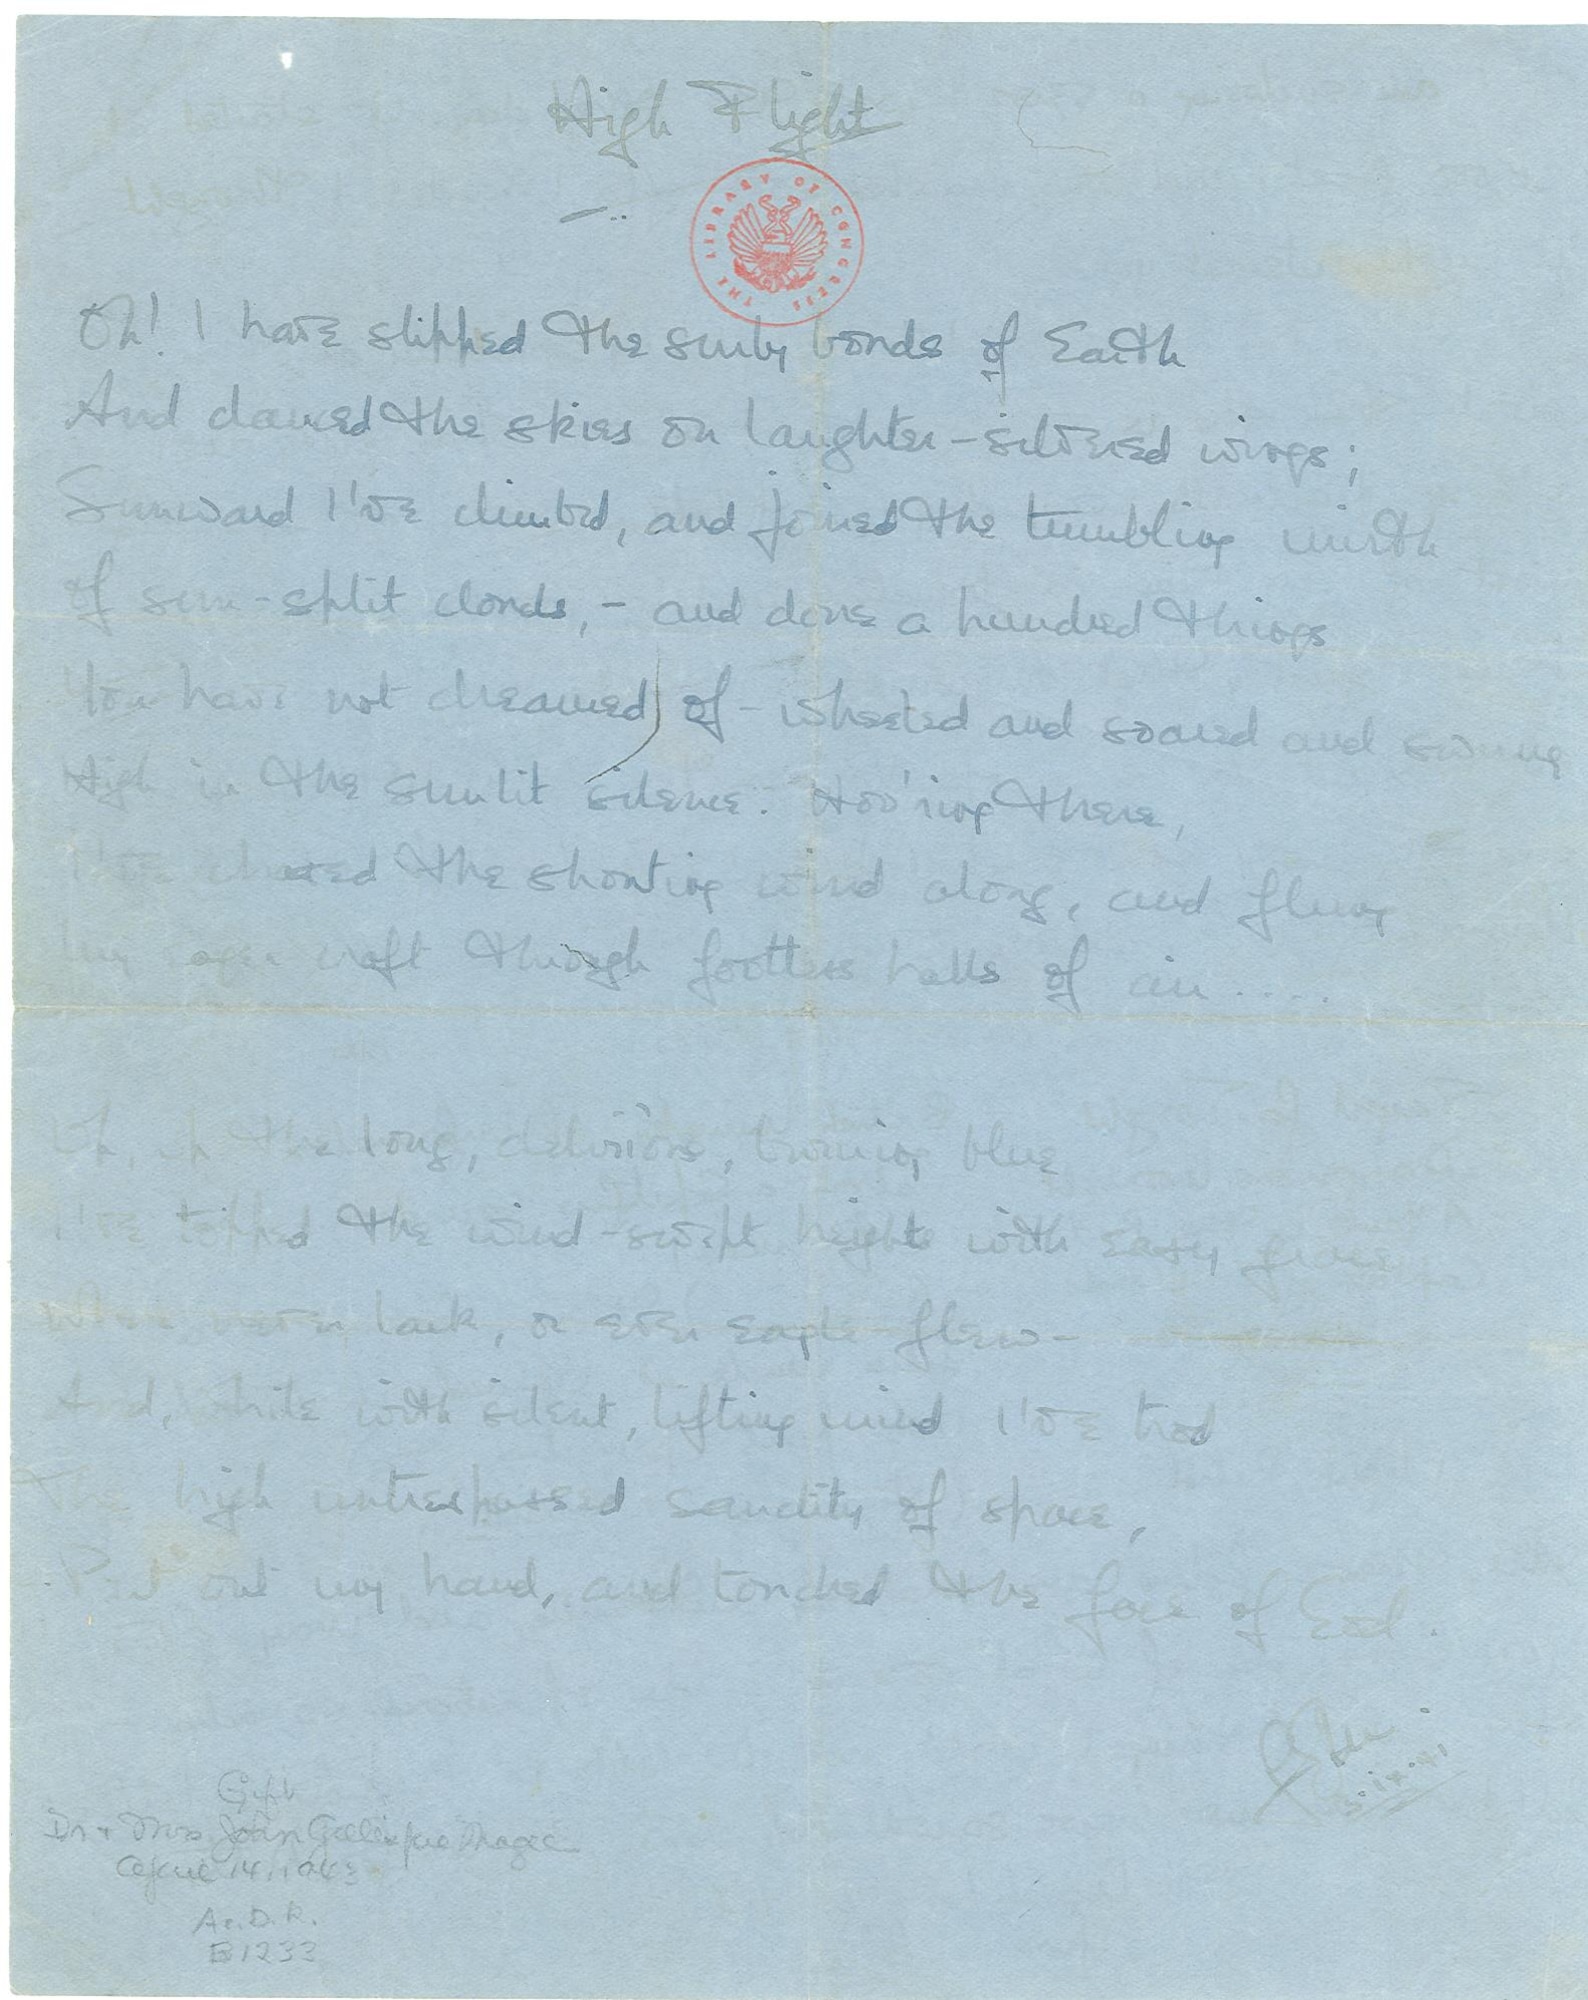 High Flight
THE LIBRARY OF CONGRESS
Oh! I have slipped the surly bonds of Earth
And danced the skies on laughter-silvered wings;
Sunward I've climbed, and joined the tumbling mirth
of sun-split clouds, - and done a hundred things
You have not dreamed of - wheeled and soared and swung
High in the sunlit silence. Hov'ring there,
I've chased the shouting wind along, and flung
My eager craft through footless halls of air ....
Up, up the long, delirious, burning blue
I've topped the wind-swept heights with easy grace
Where never lark, or ever eagle flew -
And, while with silent, lifting mind I've trod
The high untrespassed sanctity of space,
Put out my hand, and touched the face of God.
3.ix.41
Gift
Dr + Mrs John Gillespie Magee
April 14, 1943
Ac. D.R.
B1233